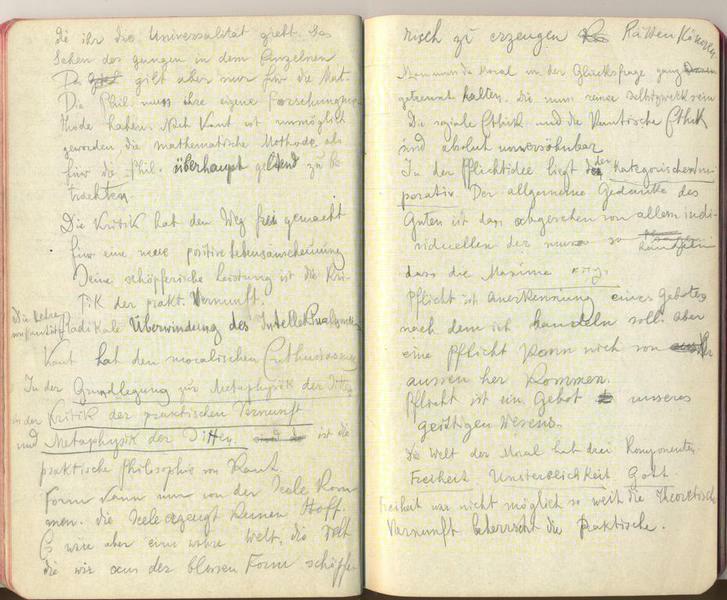 die ihr die Universalität giebt. Das
Sehen des ganzen in dem Einzelnen
Das gilt aber nur für die Mat.
Die Phil. muss ihre eigene Forschungsme-
thode haben. Nach Kant ist unmöglich
geworden die mathematische Methode als
für die Phil. überhaupt geltend zu be
trachten.
Die Kritik hat den Weg frei gemacht
für eine neue positive Lebensanschauung
Seine schöpferische Leistung ist die Kri-
tik der prakt. Vernunft.
Die Lehre
Radikale Überwindung des Intellektualismus
Kant hat den moralischen Enthusiasmus
In der Grundlegung zur Metaphysik der Sitten
in der Kritik der praktischen Vernunft
und Metaphysik der Sitten ist die
praktische Philosophie von Kant.
Form kann nur von der Seele kom
men. die Seele erzeugt keinen Stoff.
Es wäre aber eine wahre Welt, die
die wir aus der blossen Form schöpfen
risch zu erzeugen
Man muss die Moral von der Glücksfrage ganz
getrennt halten. die nun reiner Selbstzweck sein
Die soziale Ethik und die Kantische Ethik
sind absolut unversöhnbar
In der Pflichtidee liegt der Kategorische Im-
perativ. Der allgemeine Gedanke des
Guten ist das abgesehen von allem indi-
viduellen der muss so handeln
dass die Maxime
Pflicht ist Anerkennung eines Gebotes
nach dem ich handeln soll. Aber
eine Pflicht kann nich von
aussen her kommen.
Pflicht ist ein Gebot unseres
geistigen Wesens.
Die Welt der Moral hat drei Komponenten.
Freiheit Unsterblichkeit Gott
Freiheit war nicht möglich so weit die Theoretische
Vernunft beherrscht die praktische.